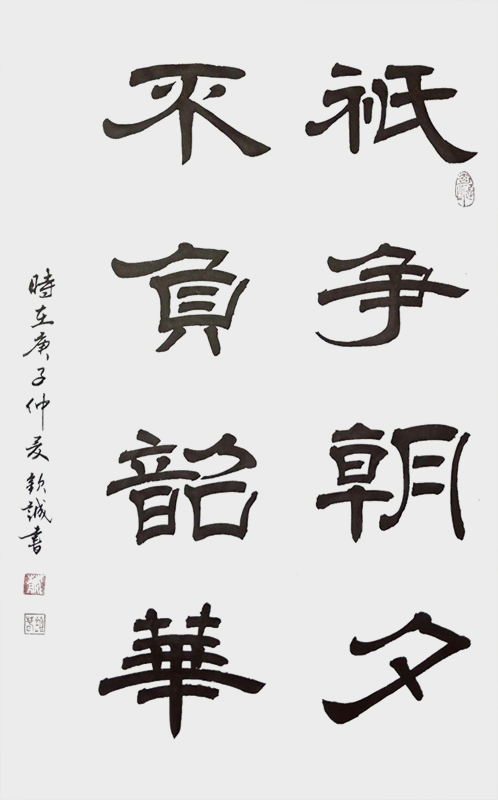 祇争朝夕
不負韶華
時在庚子仲夏欽誠書